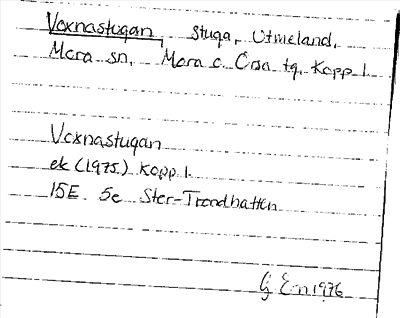 Voxnastugan, stuga, Utmeland,
Mora sn, Mora o. Orsa tg, Kopp 1.
Voxnastugan
ek (1975) Kopp 1.
15E 5e Stor-Trondhatten
G E-n 1976